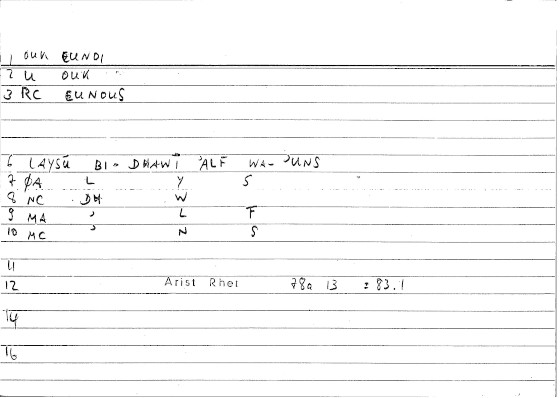 1 OUK EUNOI
2 U OUK
3 RC EUNOUS
6 LAYSŪ BI- DHAWĪ ʾALF WA- ʾUNS
7 ØA L Y S
8 NC DH W
9 MA ʾ L F
10 MC ʾ N S
11
12 Arist Rhet 78a 13 : 83.1
14
16